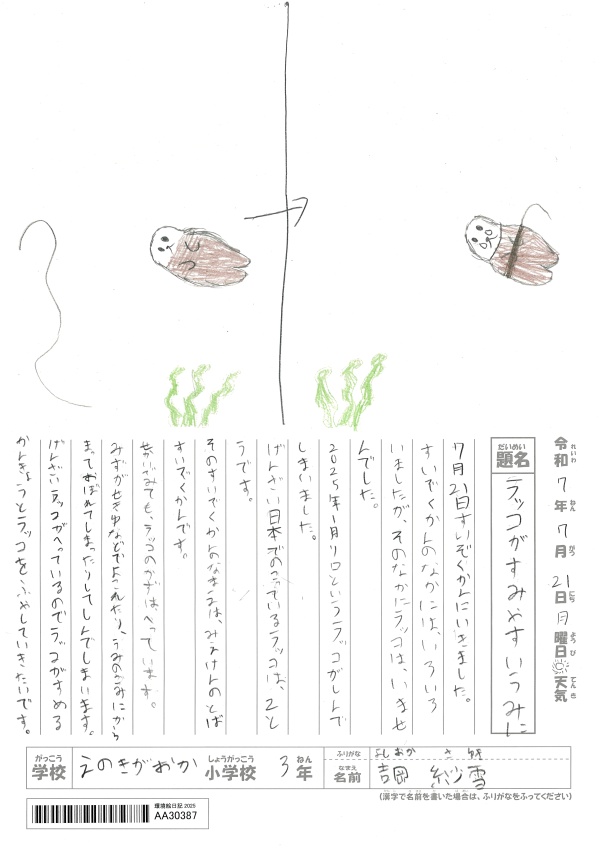 令和7年7月21日月曜日天気
れいわ ねん がつ にち ようび てんき
だいめい
題名
ラッコがすみやすいうみに
7月21日すいぞくかんにいきました。
すいぞくかんのなかには、いろいろ
いましたが、そのなかにラッコは、いませ
んでした。
2025年1月リロというラッコがしんで
しまいました。
げんざい日本でのこっているラッコは、2と
うです。
そのすいぞくかんのなまえは、みえけんのとば
すいぞくかんです。
せかいでみても、ラッコのかずは、へっています。
みずがせきゆなどでよごれたり、うみのごみにから
まっておぼれてしまったりしてしんでしまいます。
げんざいラッコがへっているのでラッコがすめる
かんきょうとラッコをふやしていきたいです。
がっこう
学校
えのきがおか
しょうがっこう
小学校
3
ねん
年
ふりがな
よしおか さゆき
なまえ
名前
吉岡 紗雪
(漢字で名前を書いた場合は、ふりがなをふってください)
環境絵日記 2025
AA30387